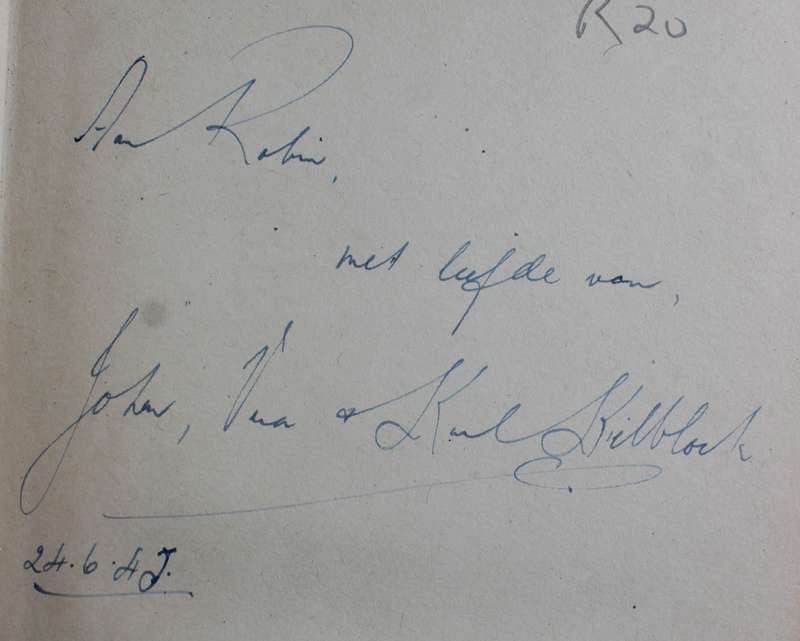 R20
Aan Robin,
met liefde van,
Johan, Vera & Karl Kielblock
24.6.47.